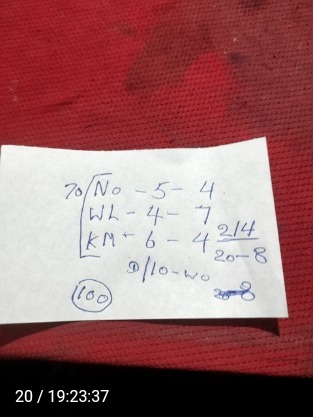 70 No - 5 - 4
WL - 4 - 7
KM - 6 - 4 214
20-8
D/10-WO
100
20 / 19:23:37